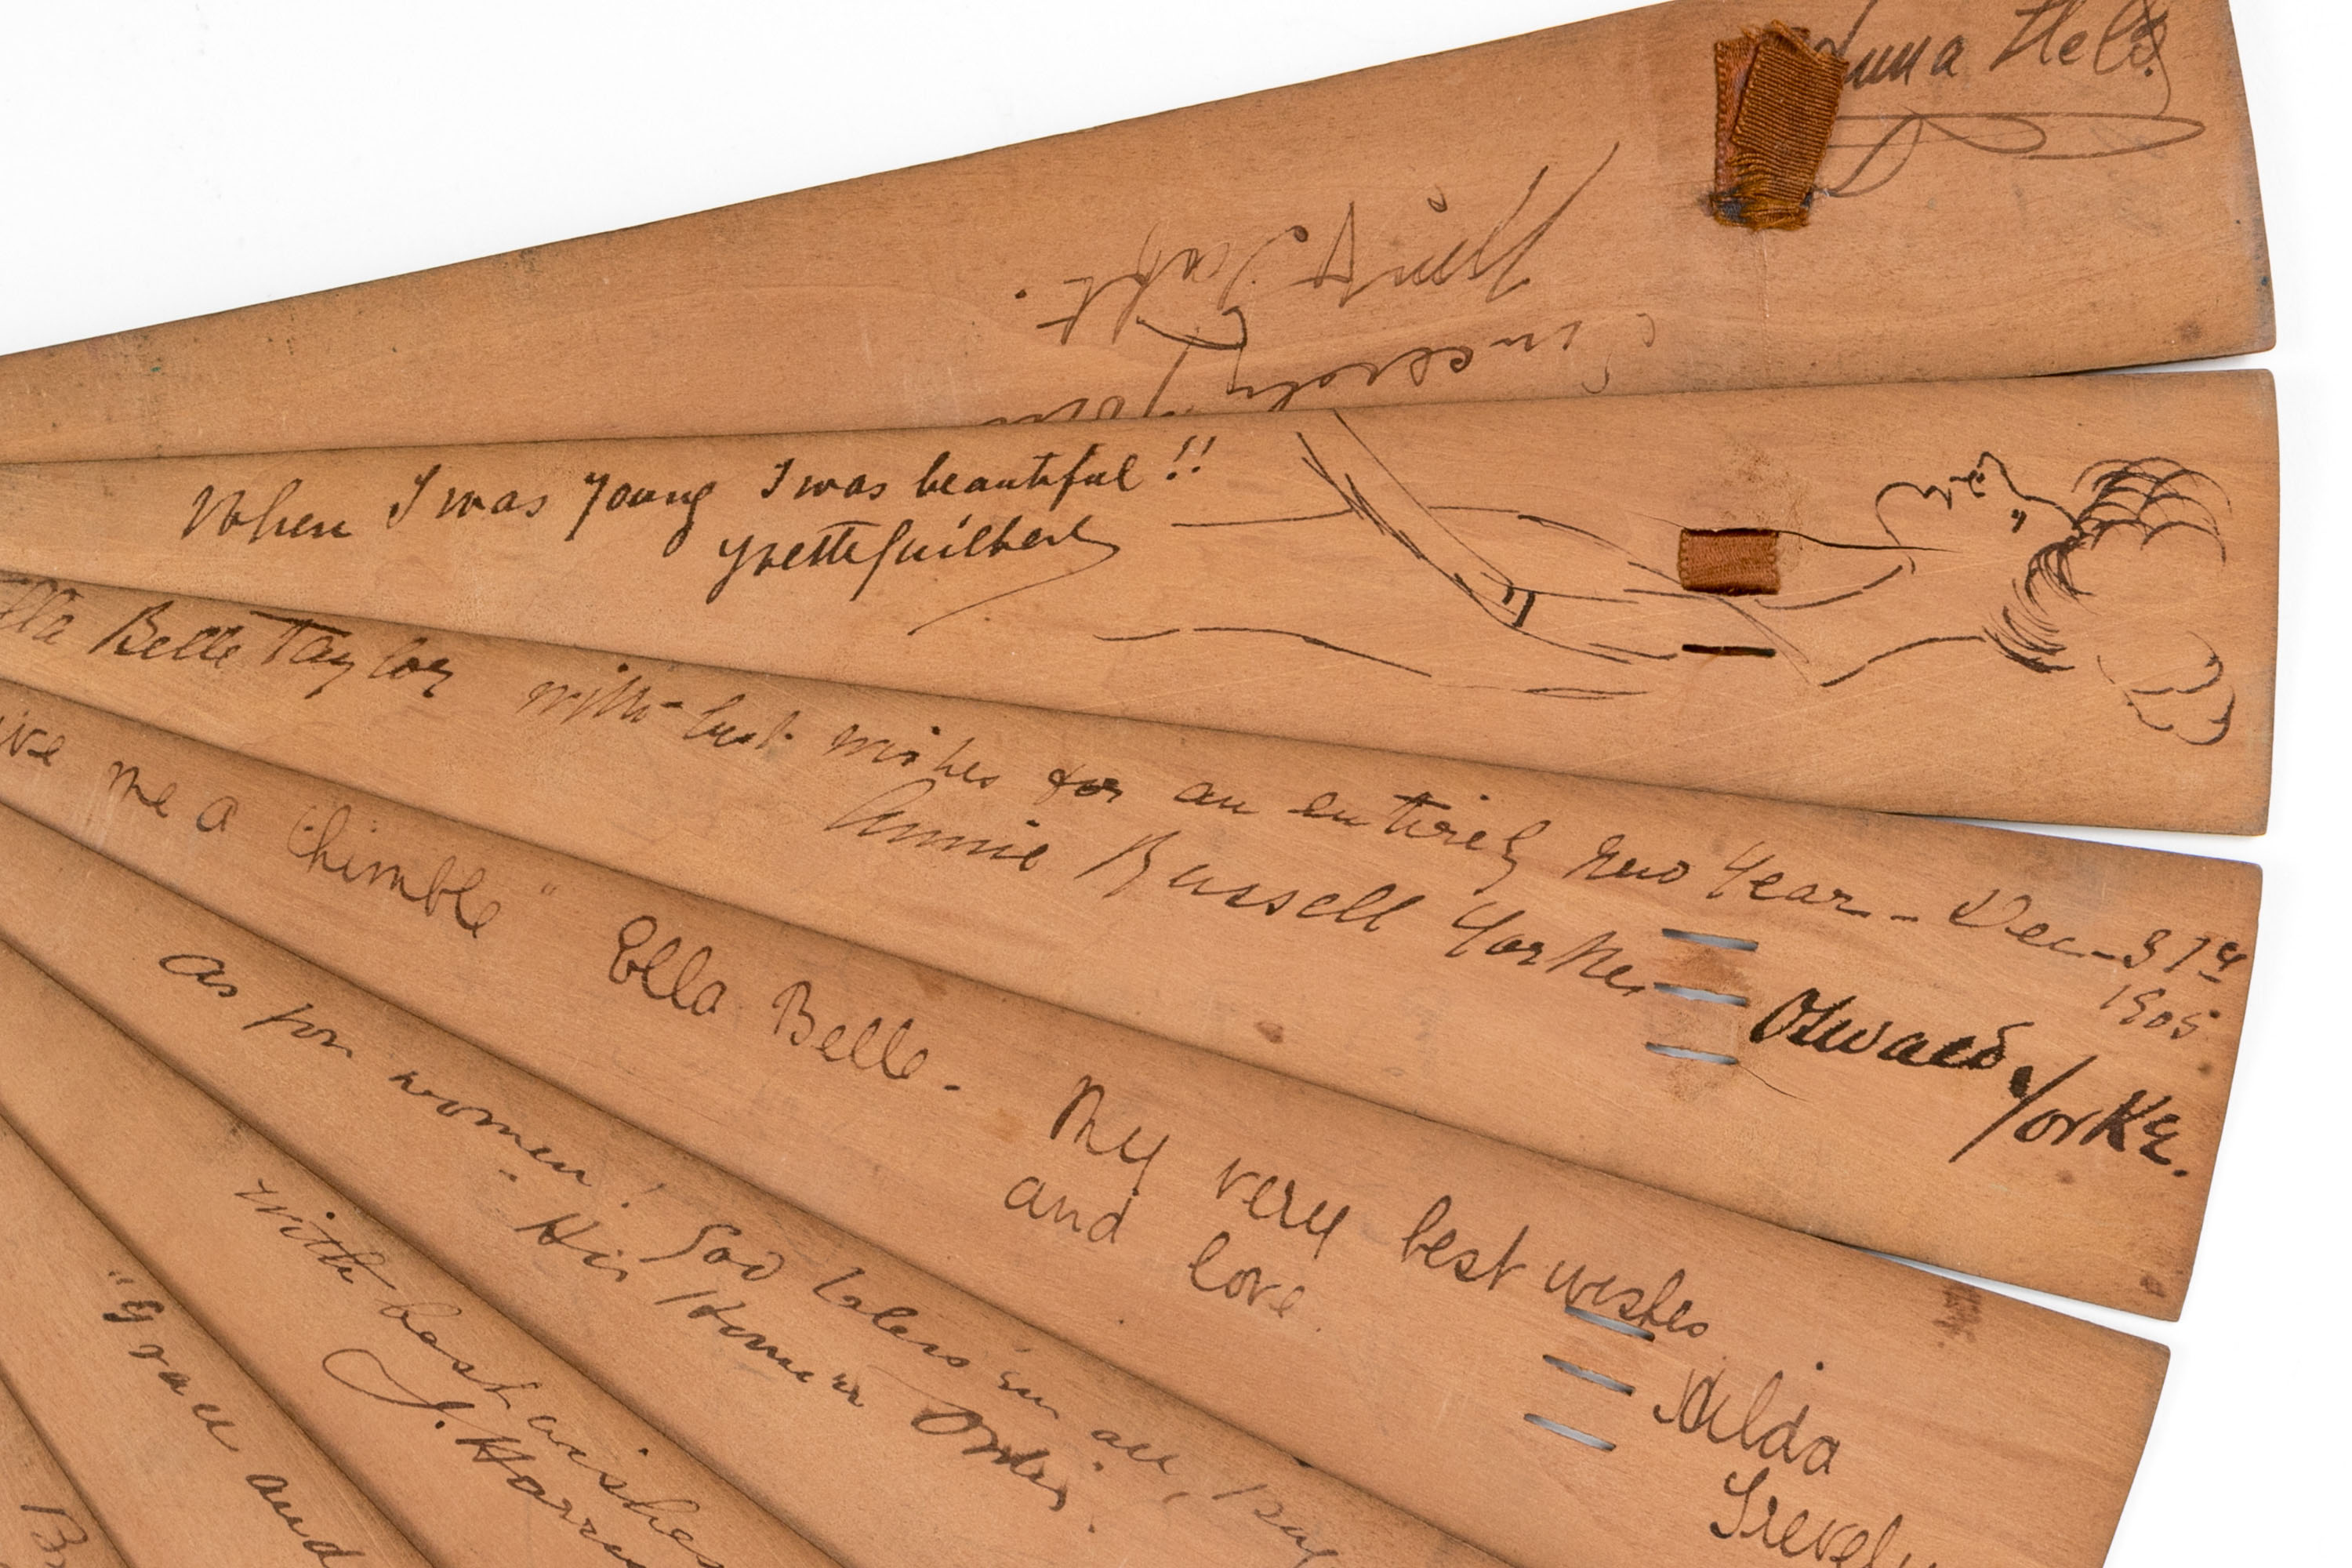 Anna Held.
Sincerely
When I was young I was beautiful !!
Yvette Guilbert
Ella Belle Taylor with best wishes for an entirely New Year - Dec - 31st
1905
Annie Russell Yorke.
Oswald Yorke.
me a thimble" Ella Belle - My very best wishes
and love.
Hilda
Trevely
as for women! God bless 'em all, say
"His Honour
with best wishes
J. Harr
"Grace and